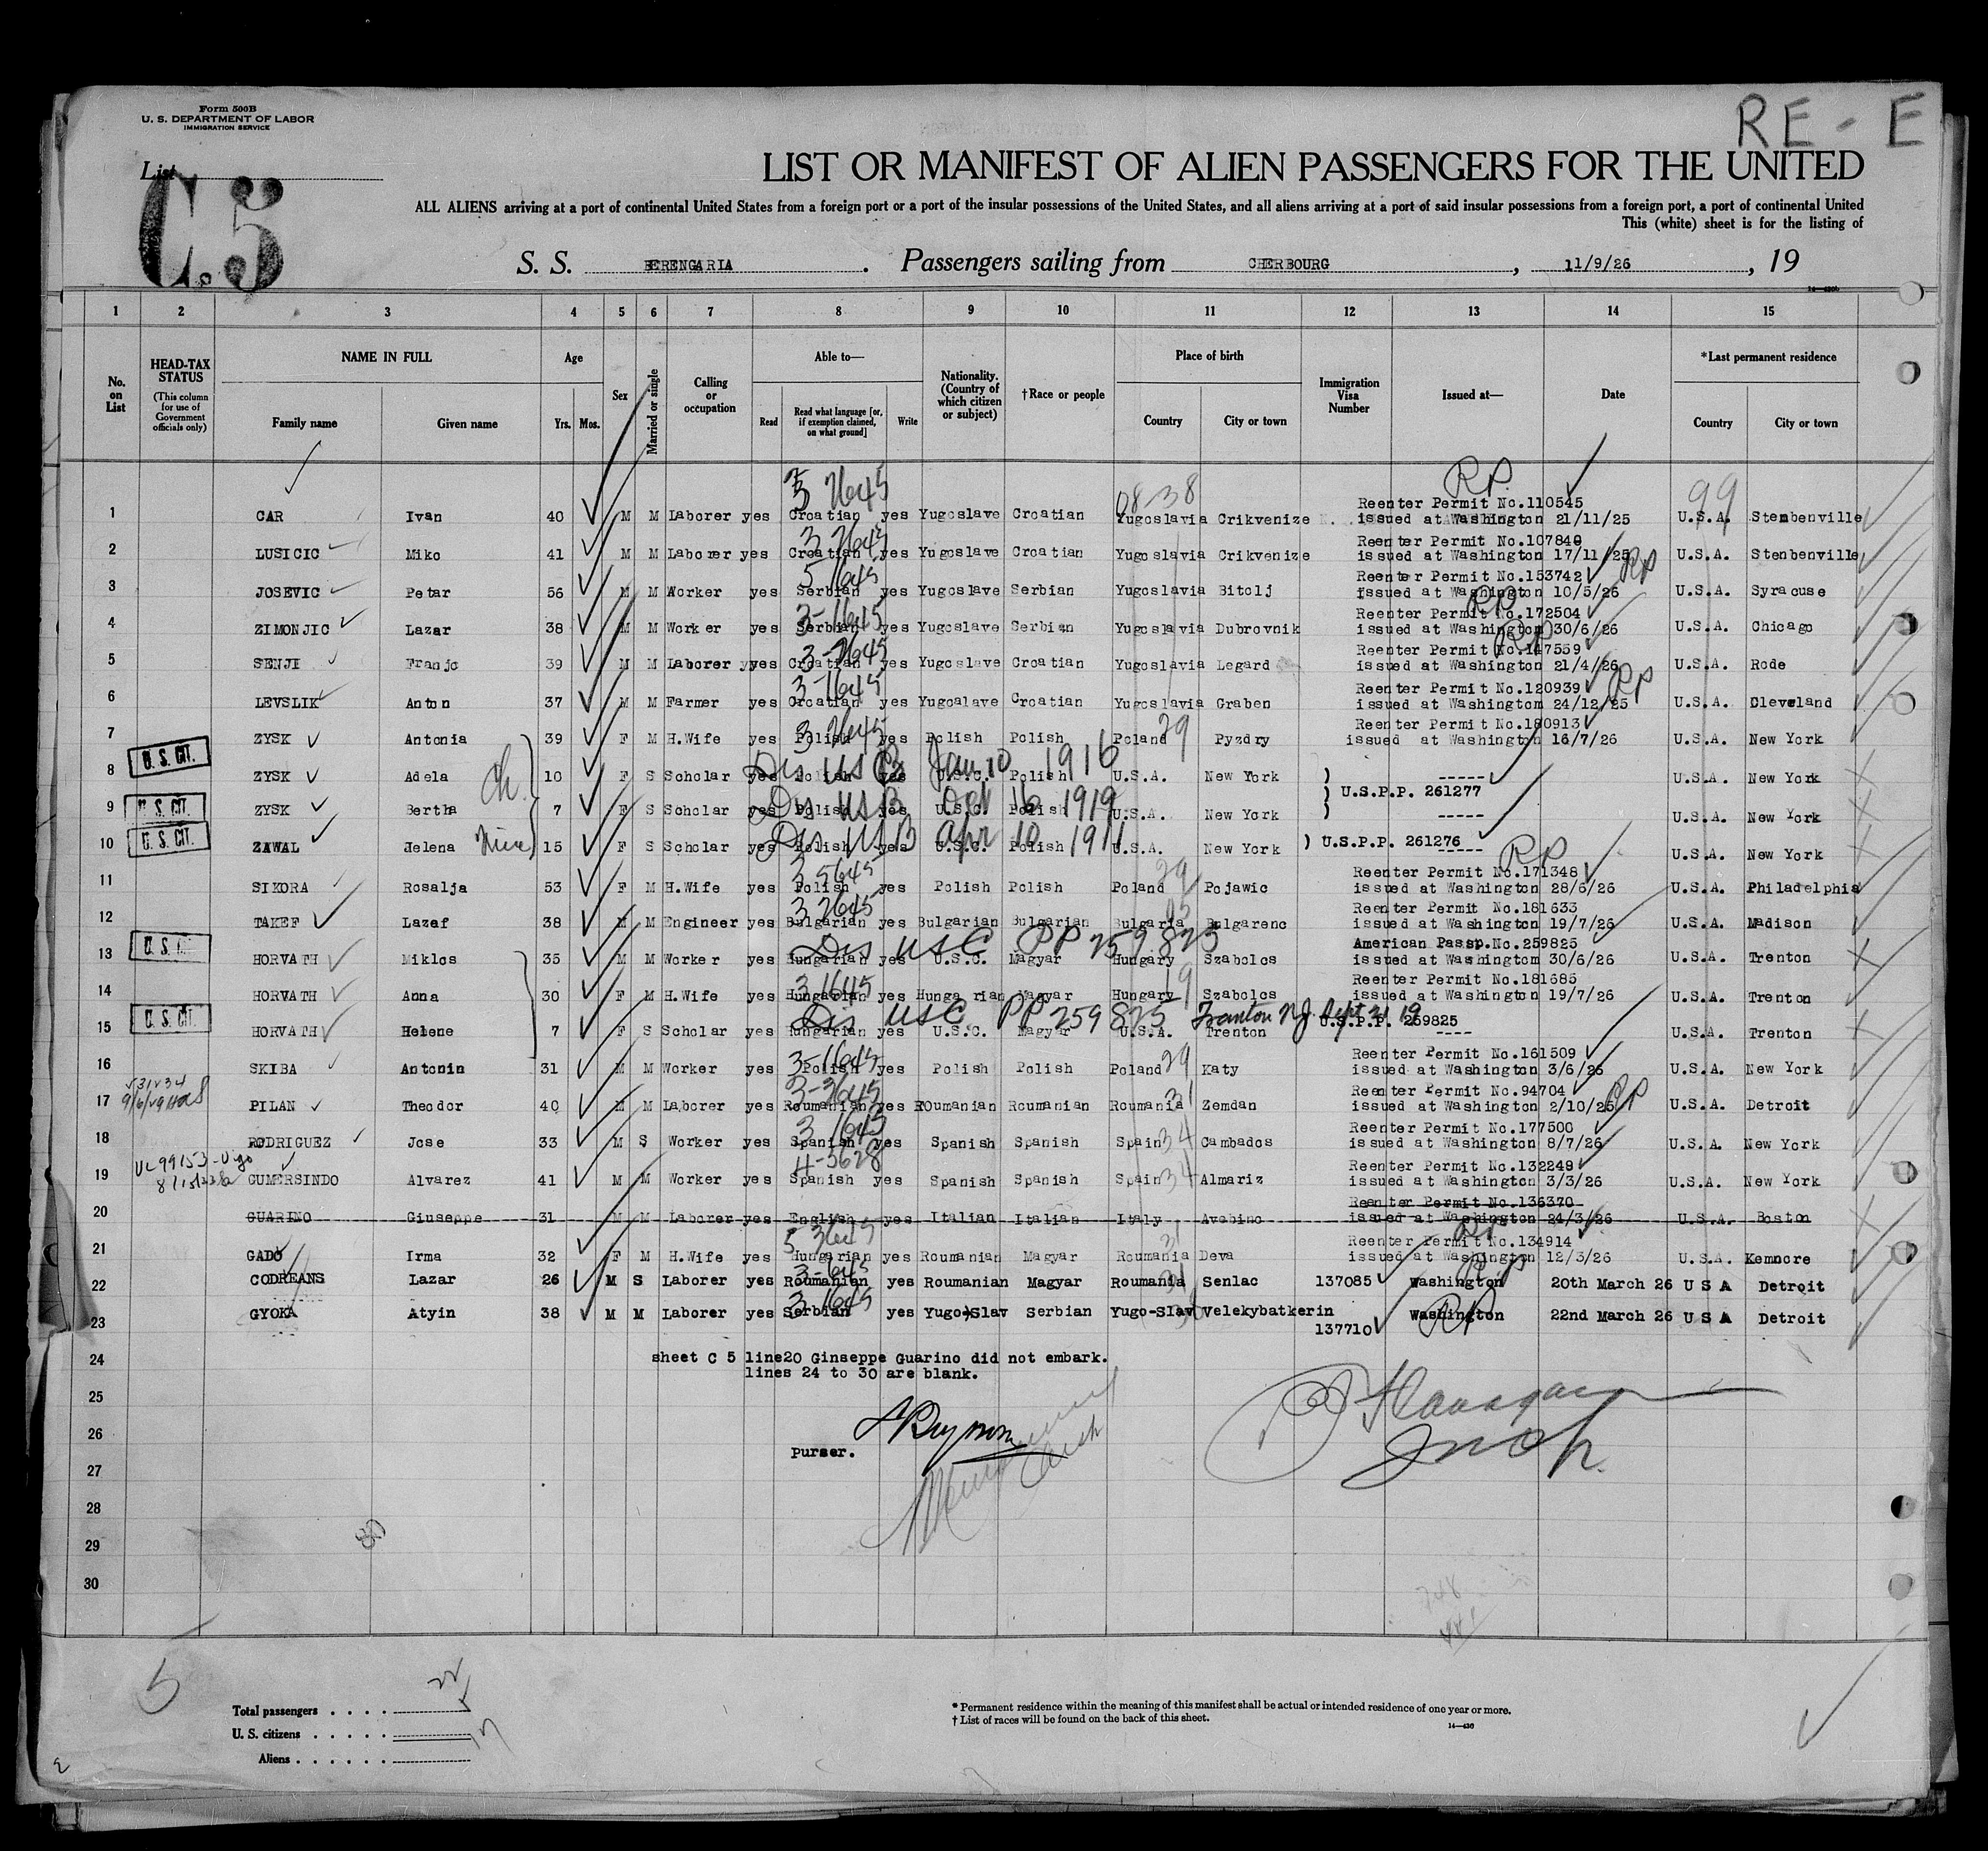 Form 500B
U. S. DEPARTMENT OF LABOR
IMMIGRATION SERVICE
RE - E
List
C.5
LIST OR MANIFEST OF ALIEN PASSENGERS FOR THE UNITED
ALL ALIENS arriving at a port of continental United States from a foreign port or a port of the insular possessions of the United States, and all aliens arriving at a port of said insular possessions from a foreign port, a port of continental United
This (white) sheet is for the listing of
S. S. BERENGARIA. Passengers sailing from CHERBOURG, 11/9/26, 19
1 2 3 4 5 6 7 8 9 10 11 12 13 14 15
No. on List HEAD-TAX STATUS (This column for use of Government officials only) NAME IN FULL Family name Given name Age Yrs. Mos. Sex Married or single Calling or occupation Able to— Read Read what language [or, if exemption claimed, on what ground] Write Nationality. (Country of which citizen or subject) †Race or people Place of birth Country City or town Immigration Visa Number Issued at— Date *Last permanent residence Country City or town
3 2645 08-38 RP. 99
1 CAR Ivan 40 M M Laborer yes Croatian yes Yugoslave Croatian Yugoslavia Crikvenize Reenter Permit No.110545 issued at Washington 21/11/25 U.S.A. Stenbenville
3 2645
2 LUSICIC Miko 41 M M Laborer yes Croatian yes Yugoslave Croatian Yugoslavia Crikvenize Reenter Permit No.107840 issued at Washington 17/11/25 U.S.A. Stenbenville
5 1645 RP
3 JOSEVIC Petar 56 M M Worker yes Serbian yes Yugoslave Serbian Yugoslavia Bitolj Reenter Permit No.153742 issued at Washington 10/5/26 U.S.A. Syracuse
3-1645 RP
4 ZIMONJIC Lazar 38 M M Worker yes Serbian yes Yugoslave Serbian Yugoslavia Dubrovnik Reenter Permit No.172504 issued at Washington 30/6/26 U.S.A. Chicago
3-2645 RP
5 SENJI Franjo 39 M M Laborer yes Croatian yes Yugoslave Croatian Yugoslavia Legard Reenter Permit No.147559 issued at Washington 21/4/26 U.S.A. Rode
3-1645 RP
6 LEVSLIK Anton 37 M M Farmer yes Croatian yes Yugoalave Croatian Yugoslavia Graben Reenter Permit No.120939 issued at Washingtom 24/12/25 U.S.A. Cleveland
3 2645 29
7 ZYSK Antonia 39 F M H.Wife yes Polish yes Polish Polish Poland Pyzdry Reenter Permit No.180913 issued at Washington 16/7/26 U.S.A. New York
U. S. CIT. Ch. Dis USB Jan 10 1916
8 ZYSK Adela 10 F S Scholar yes Polish yes U.S.C. Polish U.S.A. New York ) ----- U.S.A. New York
) U.S.P.P. 261277
U. S. CIT. Dis USB Oct 16 1919
9 ZYSK Bertha 7 F S Scholar yes Polish yes U.S.C. Polish U.S.A. New York ) ----- U.S.A. New York
U. S. CIT. Niece Dis USB Apr 10 1911
10 ZAWAL Helena 15 F S Scholar yes Polish yes U.S.C. Polish U.S.A. New York ) U.S.P.P. 261276 ----- U.S.A. New York
3 5645 29 RP
11 SIKORA Rosalja 53 F M H.Wife yes Polish yes Polish Polish Poland Pojawic Reenter Permit No.171348 issued at Washington 28/6/26 U.S.A. Philadelphia
3 2645 05
12 TAKEF Lazaf 38 M M Engineer yes Bulgarian yes Bulgarian Bulgarian Bulgaria Bulgarenc Reenter Permit No.181633 issued at Washington 19/7/26 U.S.A. Madison
Dis USC PP 259 825
13 HORVATH Miklos 35 M M Worker yes Hungarian yes U.S.C. Magyar Hungary Szabolcs American Passp.No.259825 issued at Washingtom 30/6/26 U.S.A. Trenton
3-1645 19
14 HORVATH Anna 30 F M H.Wife yes Hungarian yes Hungarian Magyar Hungary Szabolcs Reenter Permit No.181685 issued at Washington 19/7/26 U.S.A. Trenton
U. S. CIT. Dis USC PP 259825 Trenton NJ. Sept 21 19
15 HORVATH Helene 7 F S Scholar yes Hungarian yes U.S.C. Magyar U.S.A. Trenton U.S.P.P. 259825 ---- U.S.A. Trenton
3-1645 29
16 SKIBA Antonin 31 M M Worker yes Polish yes Polish Polish Poland Katy Reenter Permit No.161509 issued at Washington 3/6/26 U.S.A. New York
3-2645 31 RP
17 PILAN Theodor 40 M M Laborer yes Roumanian yes ROumanian Roumanian Roumania Zemdan Reenter Permit No.94704 issued at Washington 2/10/25 U.S.A. Detroit
3 1645 34
18 RODRIGUEZ Jose 33 M S Worker yes Spanish yes Spanish Spanish Spain Cambados Reenter Permit No.177500 issued at Washington 8/7/26 U.S.A. New York
4-5628 34
19 GUMERSINDO Alvarez 41 M M Worker yes Spanish yes Spanish Spanish Spain Almariz Reenter Permit No.132249 issued at Washington 3/3/26 U.S.A. New York
20 GUARINO Giuseppe 31 M M Laborer yes English yes Italian Italian Italy Avebino Reenter Permit No.136370 issued at Washington 24/3/26 U.S.A. Boston
5 3645 31 RP
21 GADO Irma 32 F M H.Wife yes Hungarian yes Roumanian Magyar Roumania Deva Reenter Permit No.134914 issued at Washington 12/3/26 U.S.A. Kemnore
3-1645 31 RP
22 CODREANS Lazar 26 M S Laborer yes Roumanian yes Roumanian Magyar Roumania Senlac 137085 Washington 20th March 26 U S A Detroit
3 1645 RP
23 GYOKA Atyin 38 M M Laborer yes Serbian yes Yugo-Slav Serbian Yugo-Slav Velekybatkerin 137710 Washington 22nd March 26 U S A Detroit
24 sheet C 5 line20 Ginseppe Guarino did not embark.
lines 24 to 30 are blank.
25
26 Purser.
27
28
29
30
80
5
Total passengers . . . .
U. S. citizens . . . . .
Aliens . . . . . .
* Permanent residence within the meaning of this manifest shall be actual or intended residence of one year or more.
† List of races will be found on the back of this sheet.
14—430